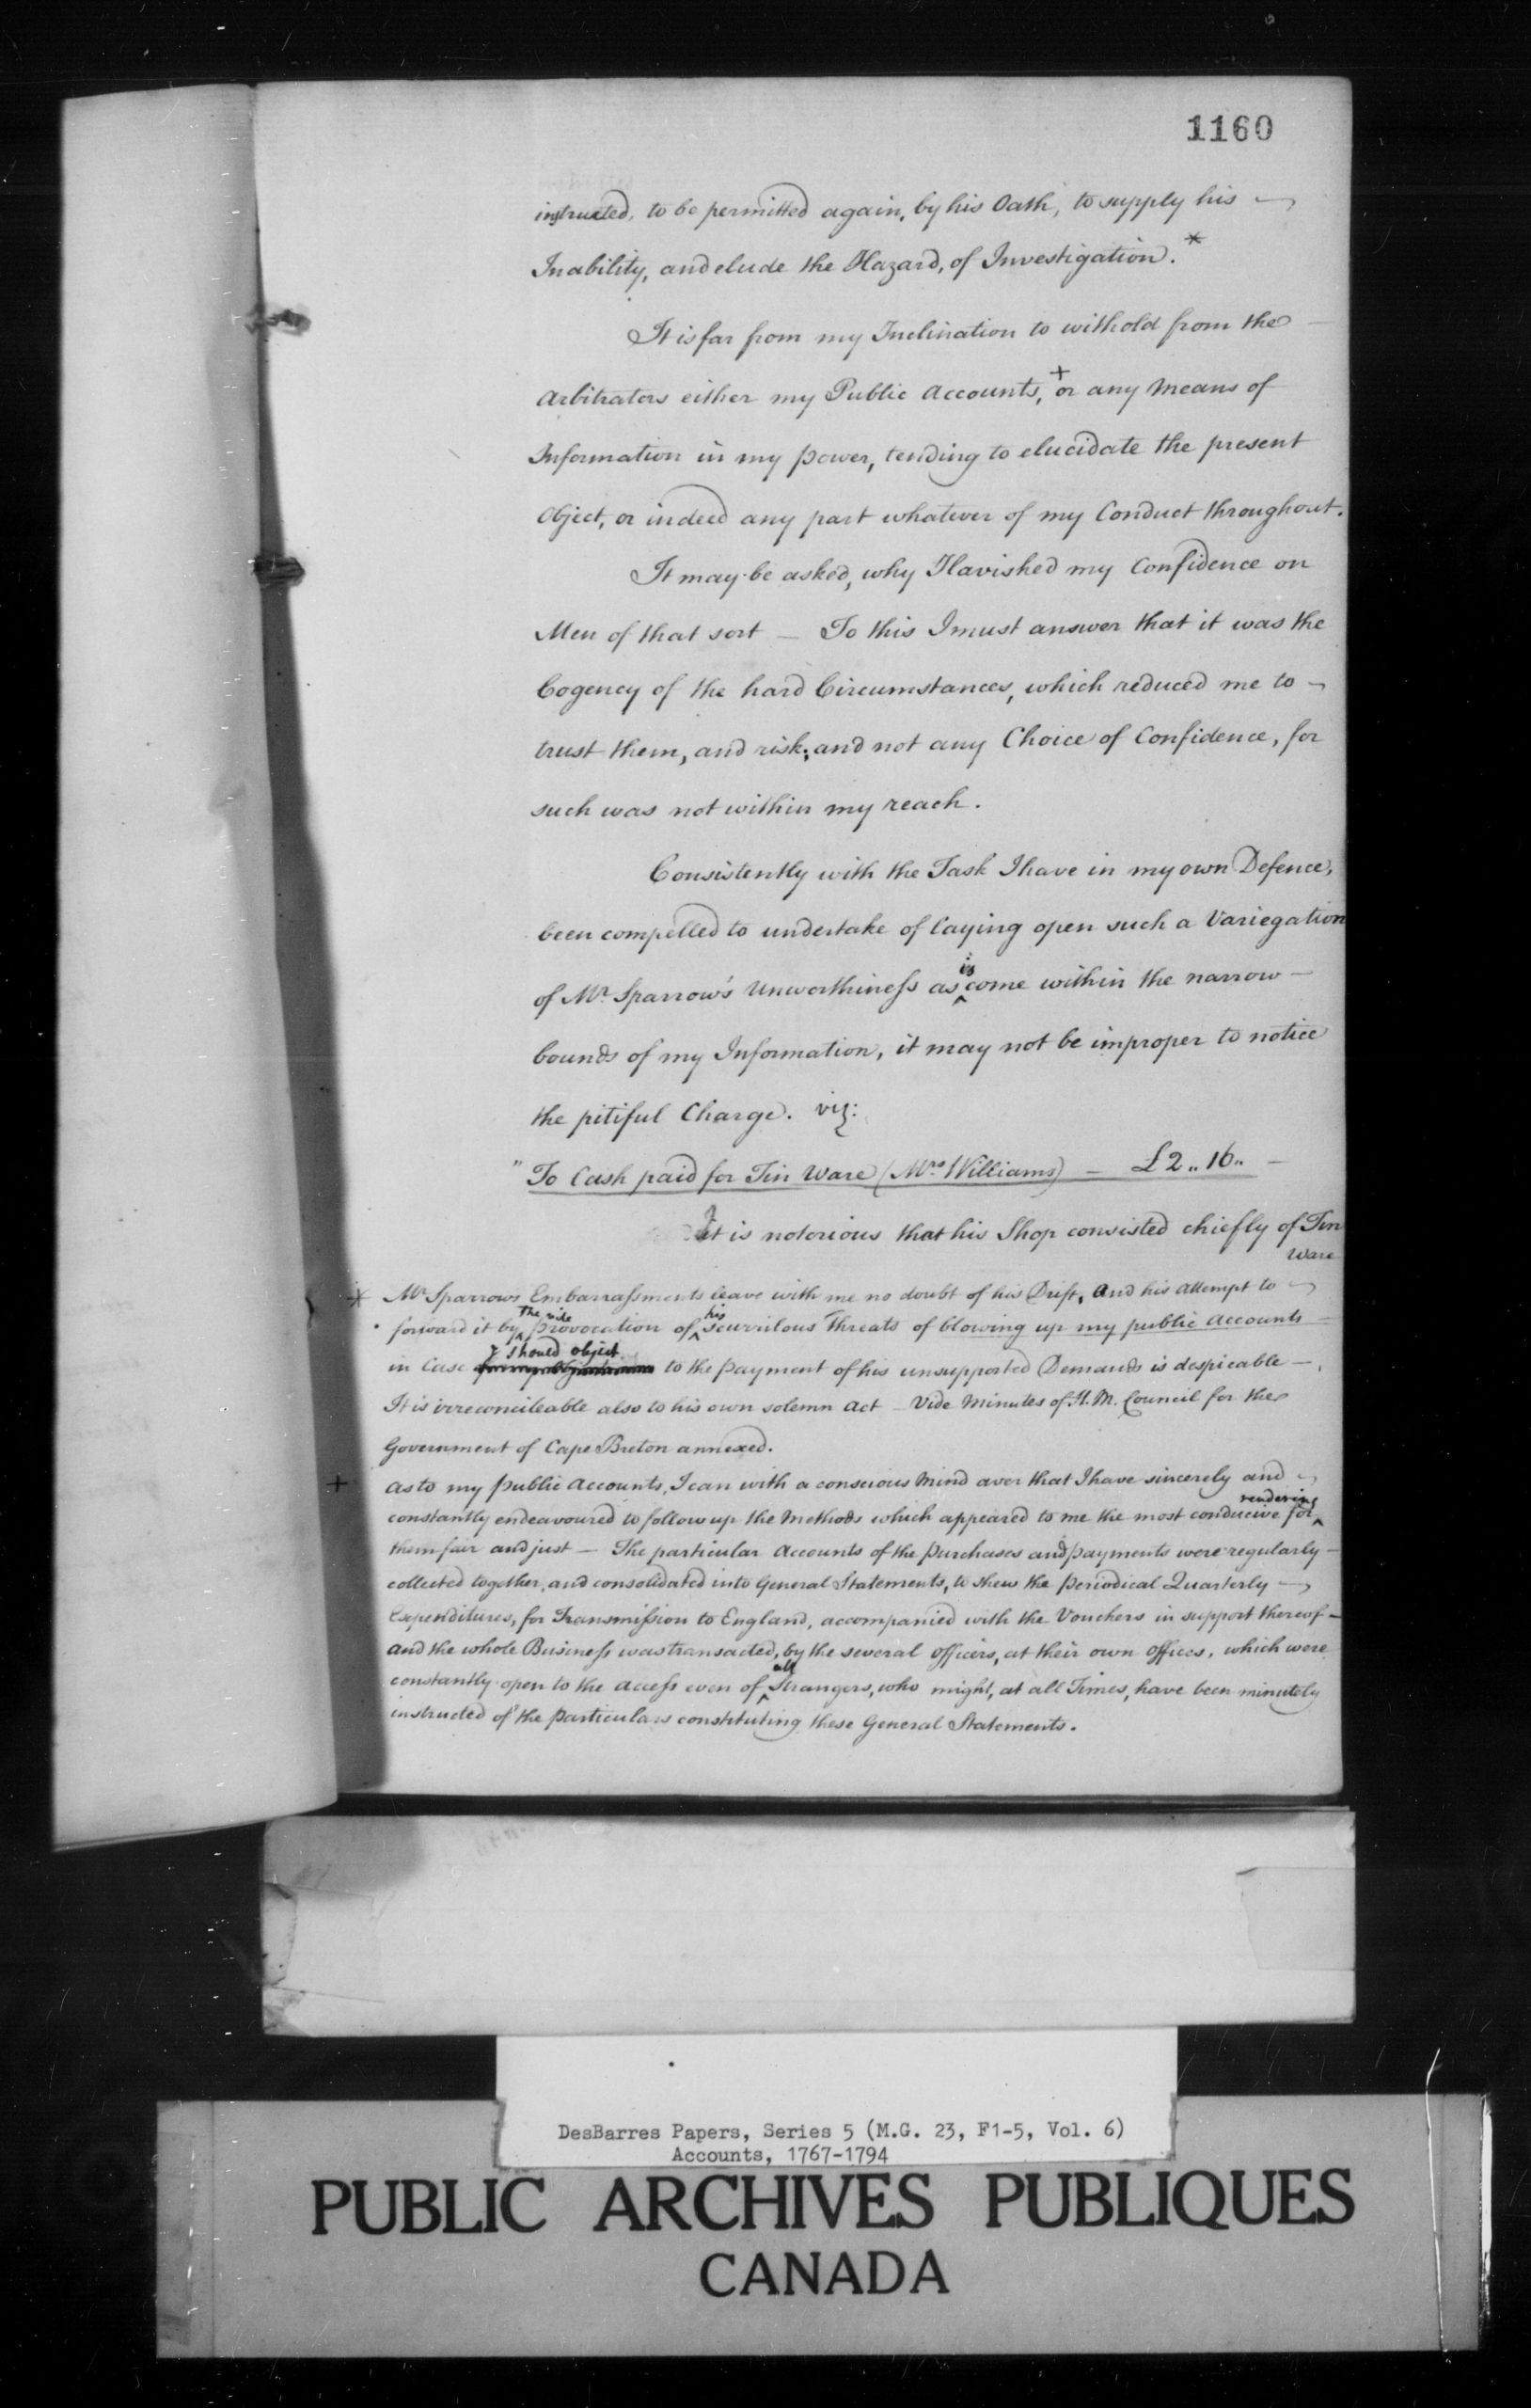 1160
instructed, to be permitted again, by his Oath, to supply his
Inability, and elude the Hazard, of Investigation.*
It is far from my Inclination to withold from the
Arbitrators either my Public Accounts,+ or any Means of
Information in my power, tending to elucidate the present
Object, or indeed any part whatever of my Conduct throughout.
It may be asked, why I lavished my Confidence on
Men of that sort — To this I must answer that it was the
Cogency of the hard Circumstances, which reduced me to
trust them, and risk; and not any Choice of Confidence, for
such was not within my reach.
Consistently with the Task I have in my own Defence,
been compelled to undertake of laying open such a Variegation
of Mr. Sparrow's Unworthiness as is come within the narrow
bounds of my Information, it may not be improper to notice
the pitiful Charge. viz:
"To Cash paid for Tin Ware (Mrs. Williams) — £2..16.. —
It is notorious that his Shop consisted chiefly of Tin
Ware
* Mr. Sparrows Embarrassments leave with me no doubt of his Drift, and his Attempt to
forward it by the vile provocation of his scurrilous Threats of blowing up my public Accounts
in Case I should object to the payment of his unsupported Demands is despicable —
It is irreconcileable also to his own solemn Act — Vide Minutes of H.M. Council for the
Government of Cape Breton annexed.
+ As to my public Accounts, I can with a conscious Mind aver that I have sincerely and
constantly endeavoured to follow up the Methods which appeared to me the most conducive for rendering
them fair and just — The particular Accounts of the Purchases and payments were regularly
collected together, and consolidated into General Statements, to shew the periodical Quarterly
Expenditures, for Transmission to England, accompanied with the Vouchers in support thereof —
and the whole Business was transacted, by the several Officers, at their own Offices, which were
constantly open to the Access even of all Strangers, who might, at all Times, have been minutely
instructed of the particulars constituting these General Statements.
DesBarres Papers, Series 5 (M.G. 23, F1-5, Vol. 6)
Accounts, 1767-1794
PUBLIC ARCHIVES PUBLIQUES
CANADA